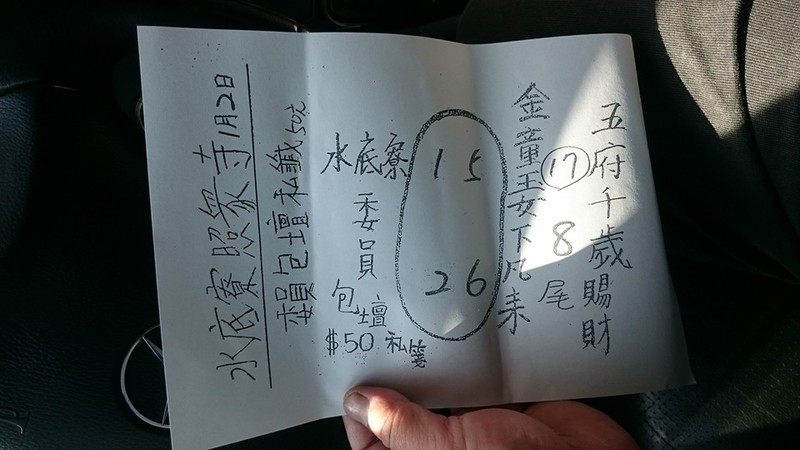 五府千歲賜財
17 8尾
金童玉女下凡來
15 26
水底寮
委員
包壇
$50 私籤
賴包壇私籤50元
水底寮照象寺1月2日